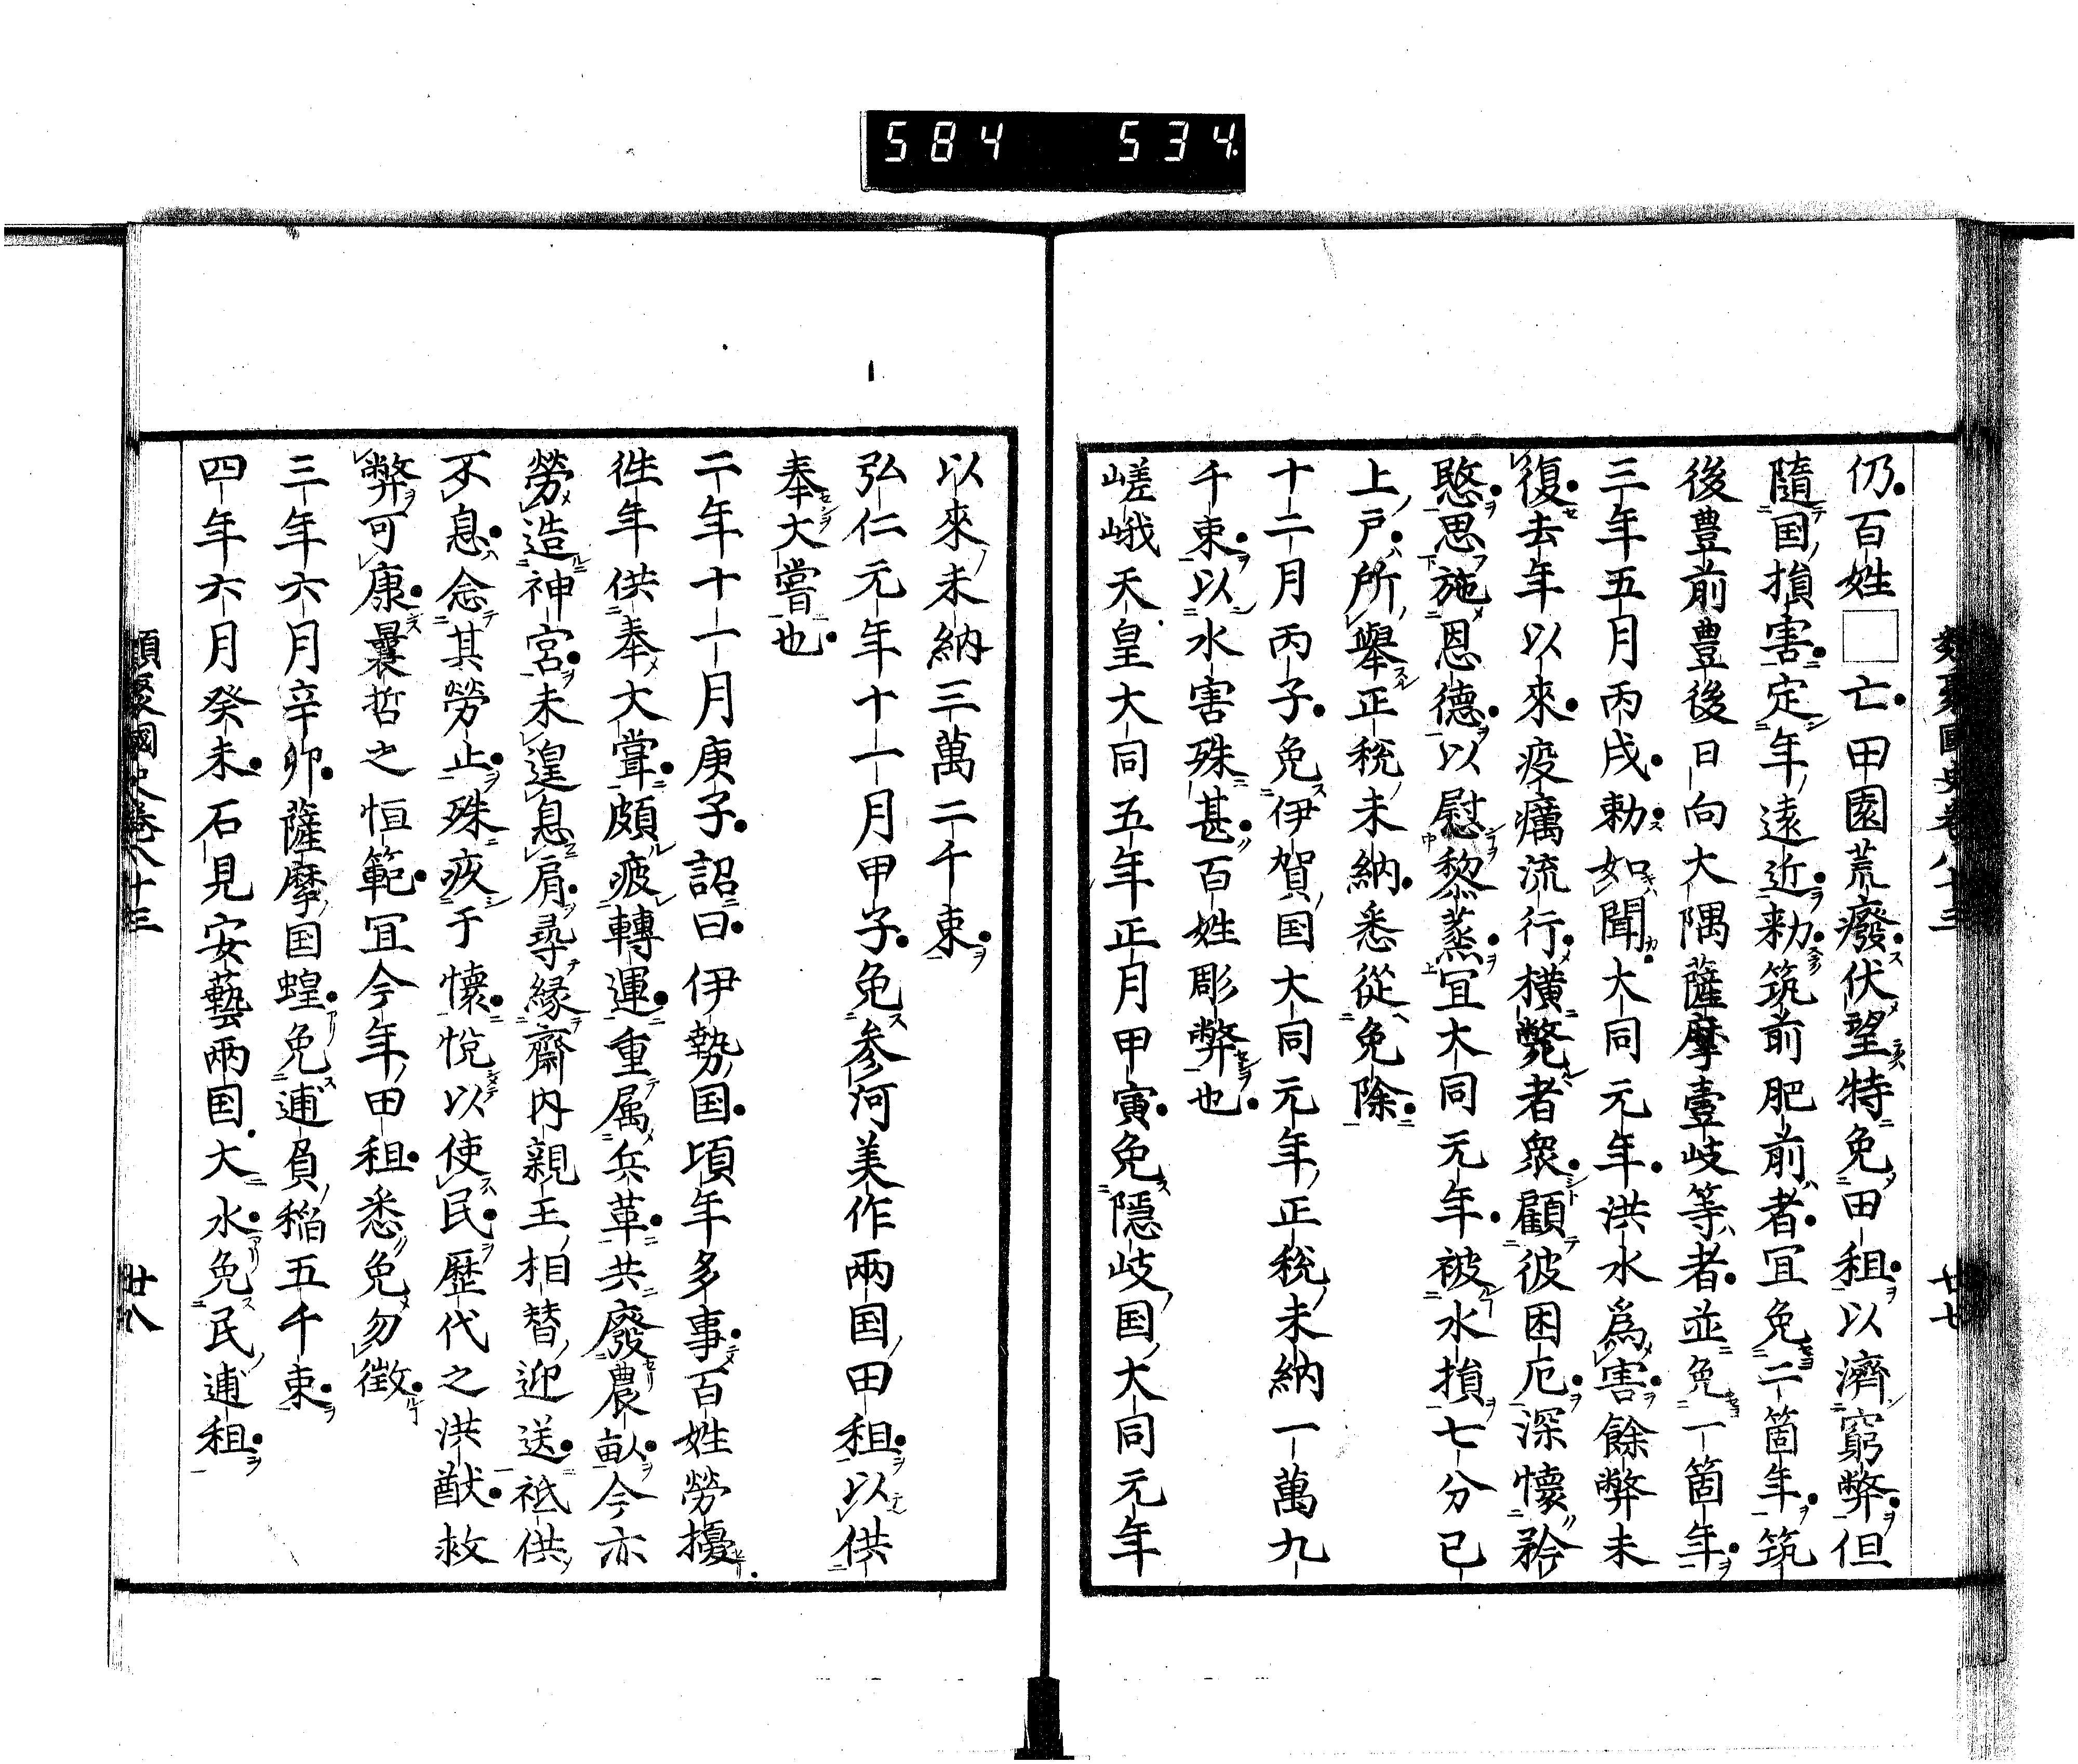 584 534
類聚國史卷八十三 廿七
仍百姓□亡田園荒廢伏望特免田租以濟窮弊但
隨国損害定年遠近勅筑前肥前者冝免二箇年筑
後豊前豊後日向大隅薩摩壹岐等者並免一箇年
三年五月丙戌勅如聞大同元年洪水爲害餘弊未
復去年以來疫癘流行横斃者衆顧彼困厄深懷矜
愍思施恩德以慰黎蒸冝大同元年被水損七分已
上戸所舉正税未納悉從免除
十二月丙子免伊賀国大同元年正税未納一萬九
千束以水害殊甚百姓彫弊也
嵯峨天皇大同五年正月甲寅免隱岐国大同元年
以來未納三萬二千束
弘仁元年十一月甲子免参河美作兩国田租以供
奉大嘗也
二年十一月庚子詔曰伊勢国頃年多事百姓勞擾
徃年供奉大甞頗疲轉運重属兵革共廢農畝今亦
勞造神宮未遑息肩尋縁齋内親王相替迎送祗供
不息念其勞止殊疚于懷悅以使民歷代之洪猷救
弊可康曩哲之恒範冝今年田租悉免勿徴
三年六月辛卯薩摩国蝗免逋負稲五千束
四年六月癸未石見安藝兩国大水免民逋租
類聚國史卷八十三 廿八